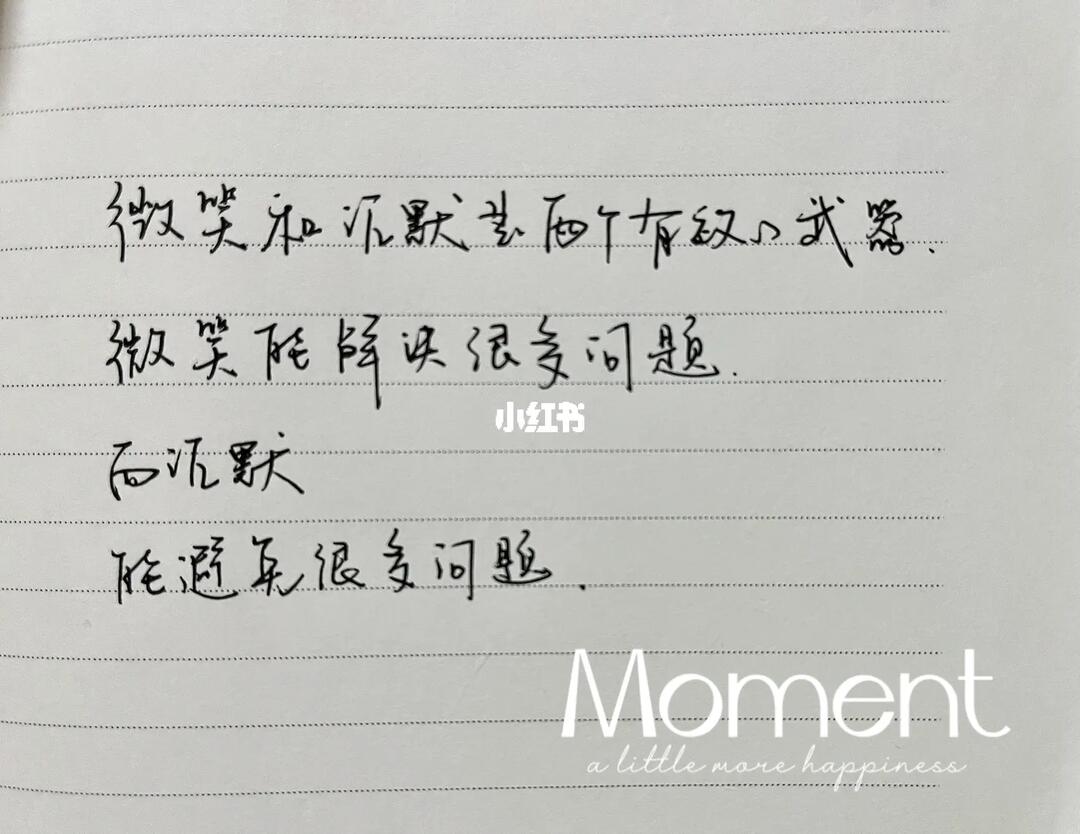 微笑和沉默是两个有效的武器.
微笑能解决很多问题.
小红书
而沉默
能避免很多问题.
Moment
a little more happiness